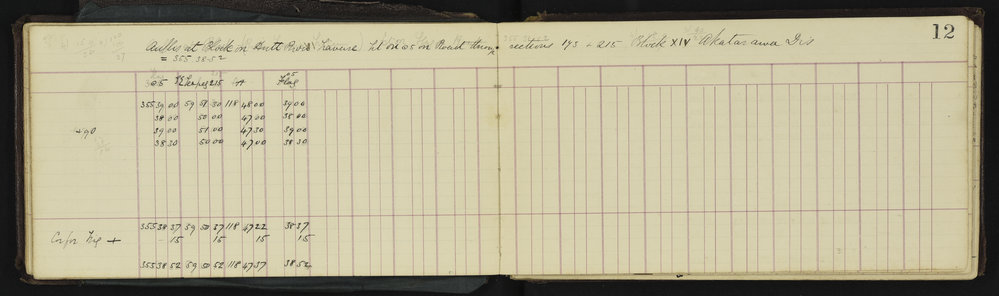 12
at Block on Hutt River Traverse Set on 05 on Road throu sections 193 - 215 Block XIV Akatarawa Dis
= 355 38 52
05 215 Flag 05
355 39 00 59 51 30 118 48 00 39 00
38 00 50 00 47 00 38 00
+90 39 00 51 00 47 30 39 00
38 30 50 00 47 00 38 30
355 38 37 59 50 37 118 47 22 38 37
Cor for Lev + 15 15 15 15
355 38 52 59 50 52 118 47 37 38 52